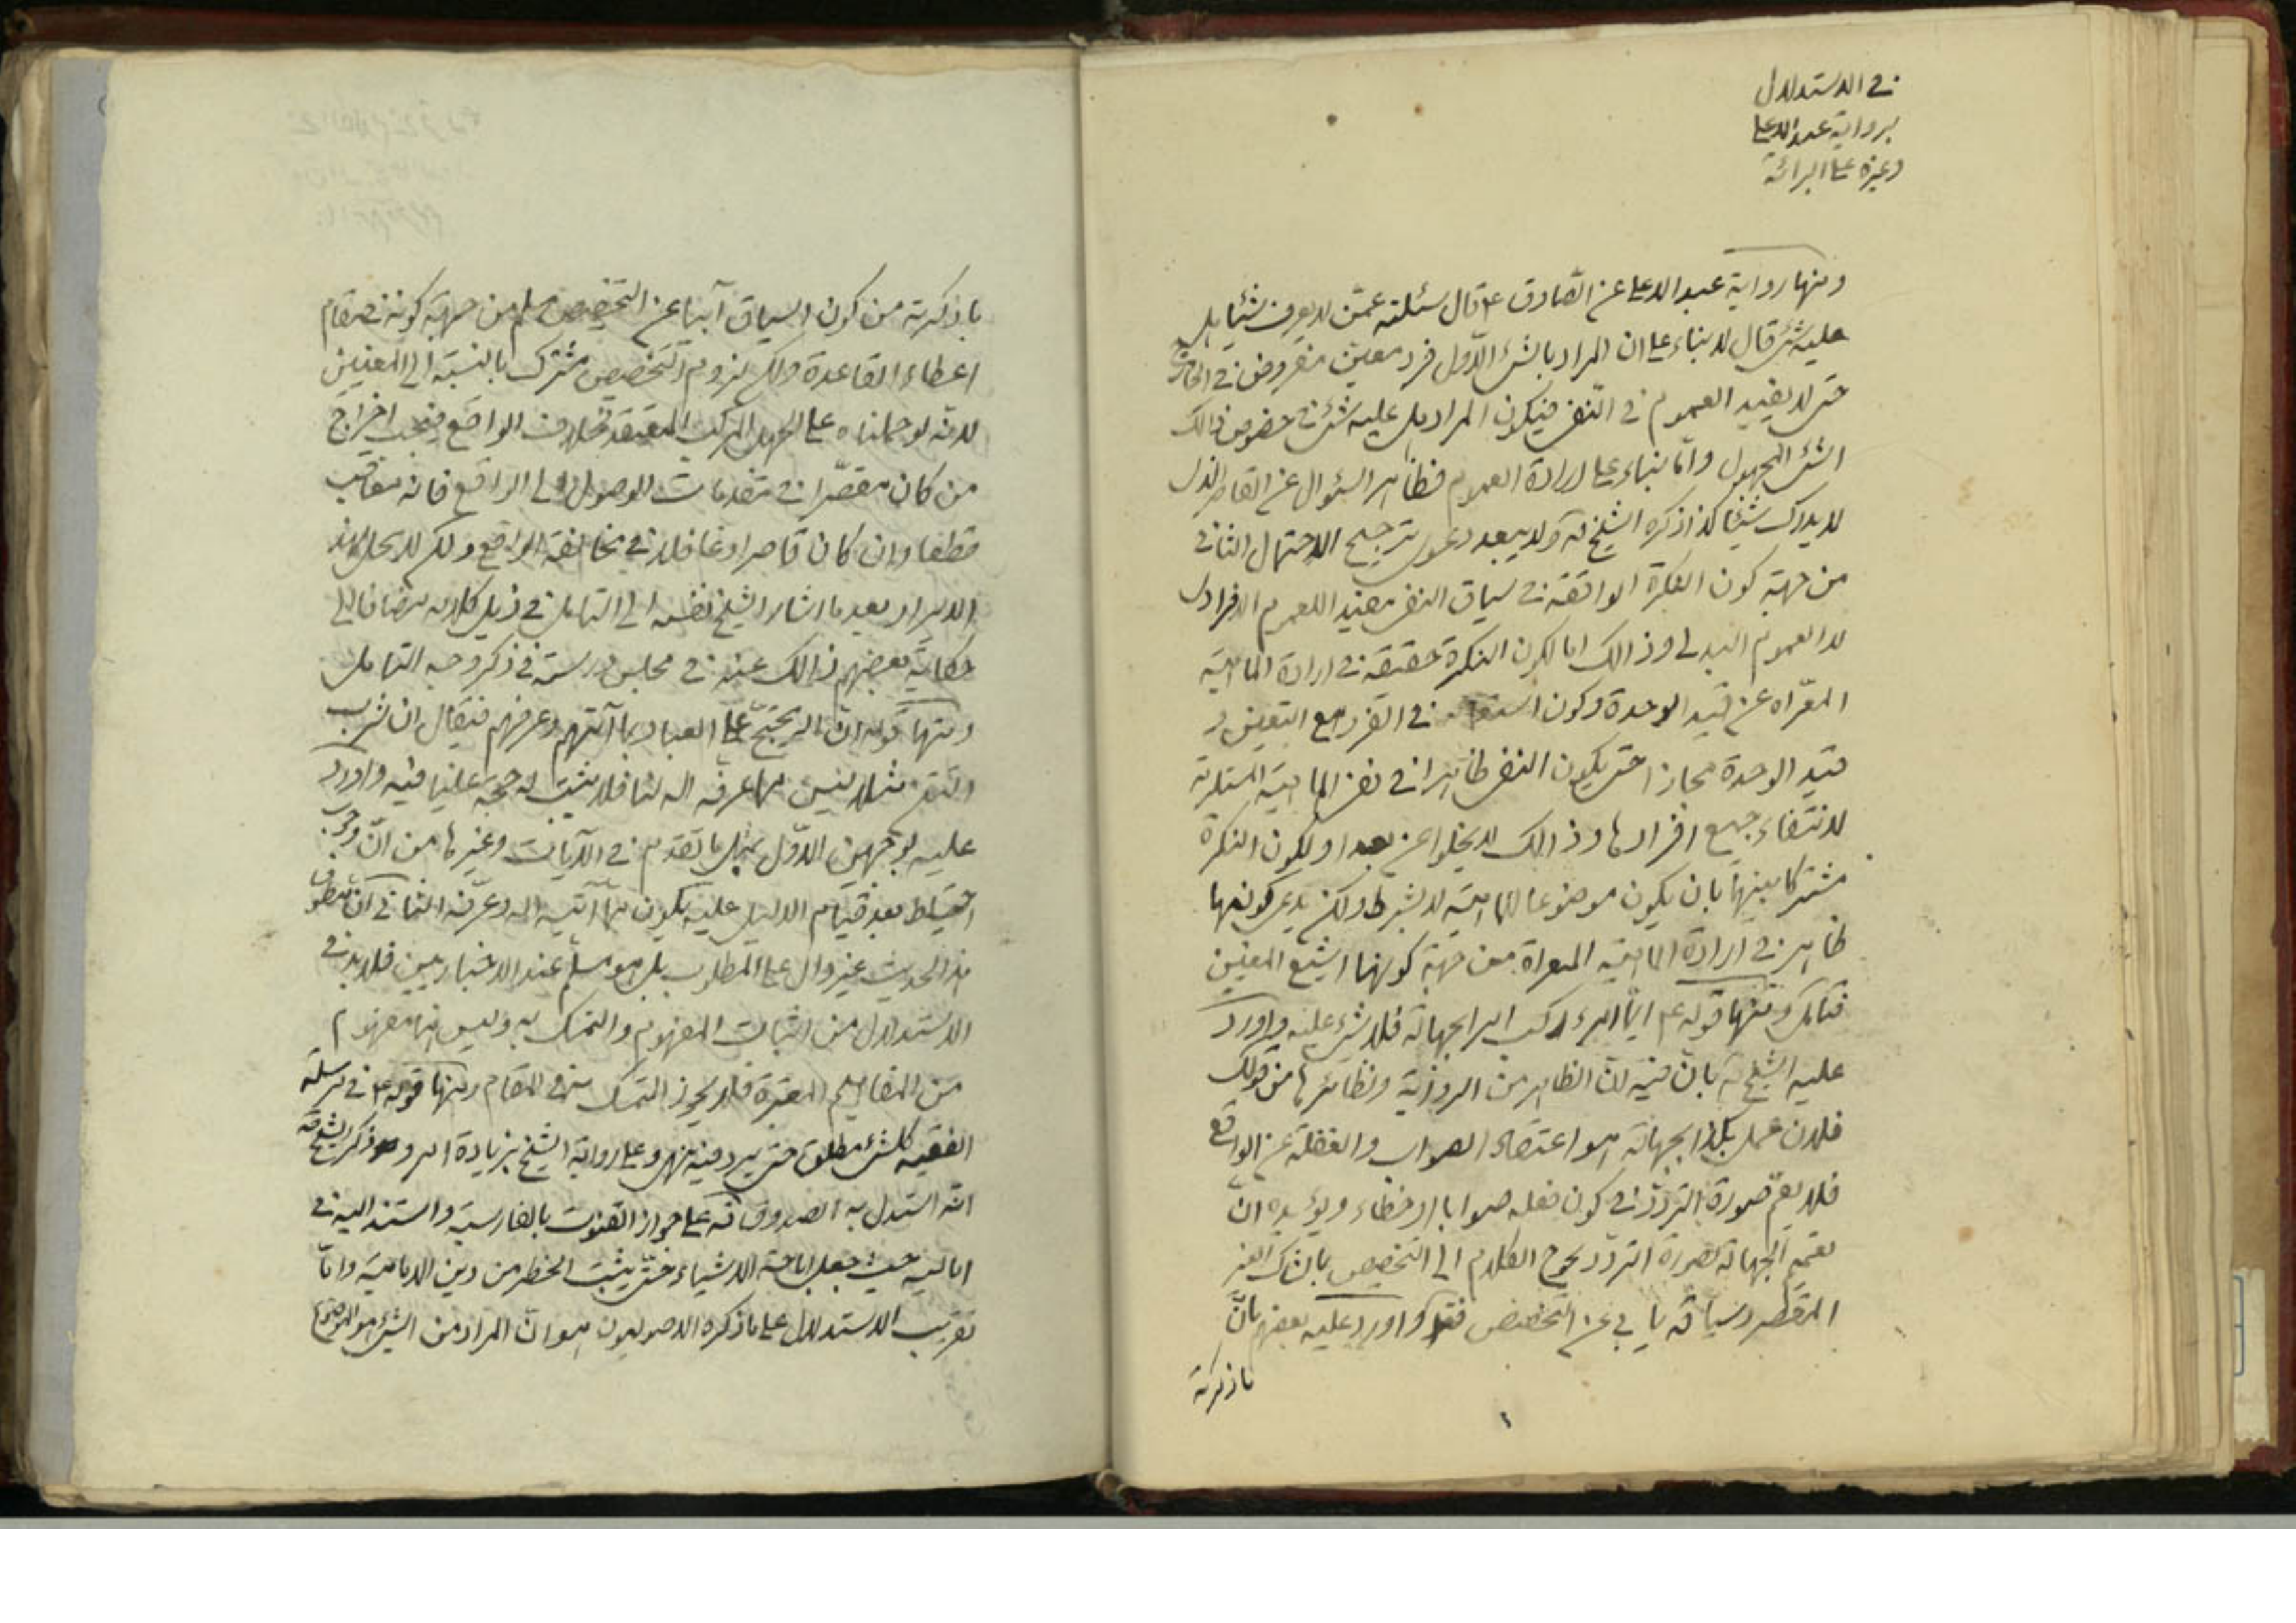 في الاستدلال
برواية عبد الاعلى
وغيره على البرائة
ومنها رواية عبد الاعلى عن الصّادق ع قال سئلته عمّن لا يعرف شيئا هل
عليه شئ قال لا بناء على ان المراد بالشئ الاوّل فرد معين مفروض في الخارج
حتى لا يفيد العموم في النفى فيكون المراد هل عليه شئ في خصوص ذالك
الشئ المجهول وامّا بناء على ارادة العموم فظاهر السئوال عن القاصر الذى
لا يدرك شيئا كذا ذكره الشيخ ره ولا يبعد دعوى ترجيح الاحتمال الثانى
من جهة كون النكرة الواقعة في سياق النفى مفيدا للعموم الافرادى
لا العموم البدلى وذالك اما لكون النكرة حقيقة في ارادة الماهية
المعرّاه عن قيد الوحدة وكون في الفرد مع التعيين و
قيد الوحدة مجازا حتى يكون النفى ظاهرا في نفى الماهية المستلزمة
لانتفاء جميع افرادها وذالك لا يخلوا عن بعد او لكون النكرة
مشتركا بينها بان يكون موضوعا للماهية لا بشرط ولكن يدعى كونها
ظاهر في ارادة الماهية المعراة من جهة كونها اشيع المعنيين
فتامل ومنها قوله ع ايّما امرء ركب امرا بجهالة فلا شئ عليه واورد
عليه الشيخ ره بانّ فيه انّ الظاهر من الرواية ونظائرها من قولك
فلان عمل بكذا بجهالة هو اعتقاد الصواب والغفلة عن الواقع
فلا يعمّ صورة التردّد في كون فعله صوابا او خطاء ويؤيده انّ
تعميم الجهالة لصورة التردّد يحوج الكلام الى التخصيص بالشاك الغير
المقصّر وسياقه يابى عن التخصيص فتد واورد عليه بعضهم بانّ
ما ذكرته
ما ذكرته من كون السياق آبيا عن التخصيص مسلم من جهة كونه في مقام
اعطاء القاعدة ولكن لزوم التخصيص مشترك بالنسبة الى المعنيين
لانّه لو حملناه على الجهل المركب المعتقد بخلاف الواقع فيجب اخراج
من كان مقصّرا في مقدمات الوصول الى الواقع فانه معاقب
قطعا وان كان قاصرا وغافلا في مخالفة الواقع ولكن لا يحل لهذا
الايراد بعد ما اشار الشيخ نفسه الى التامل في ذيل كلامه مضافا الى
حكاية بعضهم ذالك عنه في مجلس درسه في ذكر وجه التامل
ومنها قوله انّ الله يحتجّ على العباد بما آتيهم وعرفهم فيقال ان شرب
التتن مثلا ليس مما عرفه الله لنا فلا يثبت له حجة علينا فيه واورد
عليه بوجهين الاوّل بمثل ما تقدم في الآيات وغيرها من انّ وجوب
احتياط بعد قيام الدليل عليه يكون ممّا آتيه الله وعرّفه الثانى انّ منطوق
هذ الحديث غير دال على المطلوب بل هو مسلّم عند الاخباريين فلا بد في
الاستدلال من اثبات المفهوم والتمسّك به وليس انه مفهوم
من المفاهيم المعتبرة فلا يجوز التمسّك به في المقام ومنها قوله ع في مرسلة
الفقيه كلّ شئ مطلق حتى يرد فيه نهى وعلى رواية الشيخ بزيادة امر و ذكر الشيخ ره
انّه استدلّ به الصدوق ره على جواز القنوت بالفارسية واستند اليه في
اماليه حيث جعل اباحة الاشياء حتّى يثبت الحظر من دين الامامية وامّا
تقريب الاستدلال على ما ذكره الاصوليون هو انّ المراد من الشئ هو الموضوع